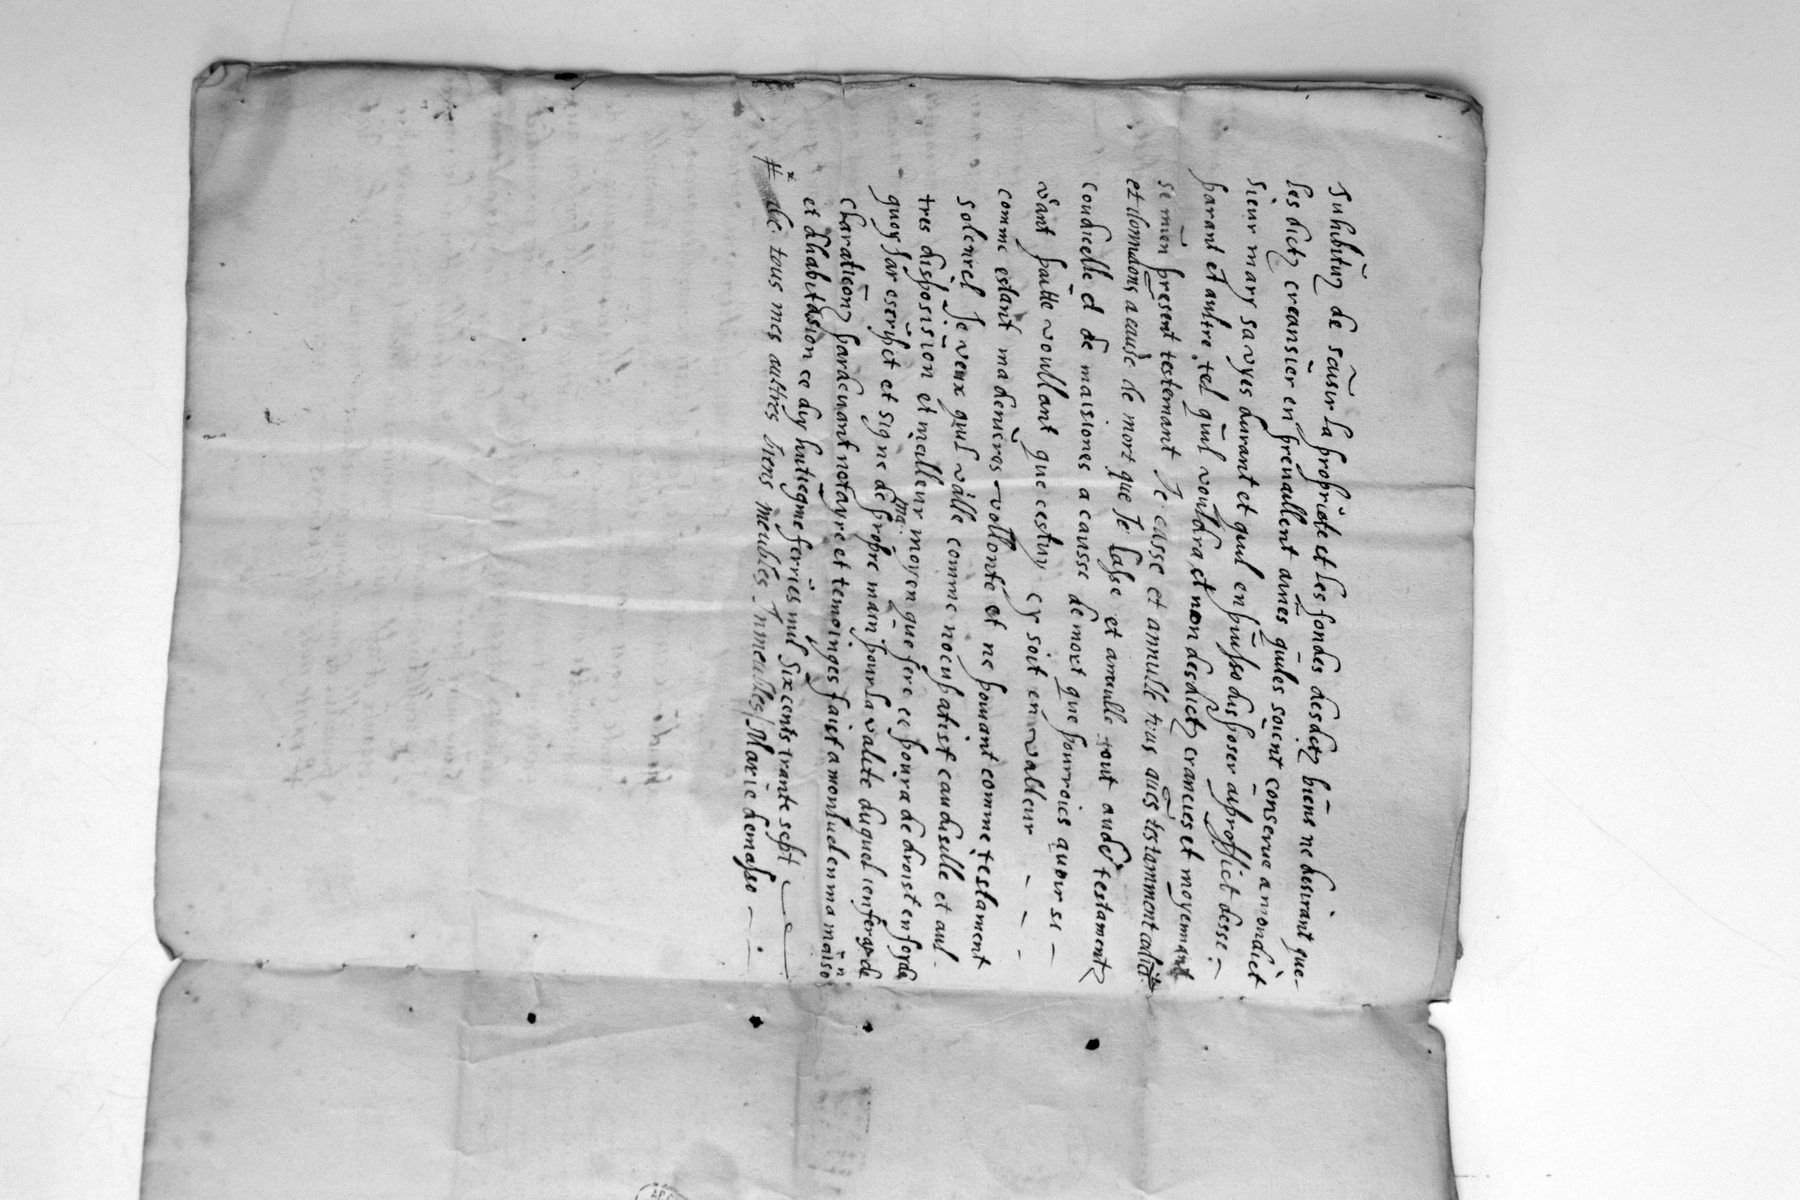 subtituz de saisir la propriete et les fondes desdictz biens ne desirant que
les dictz creansier en prenaillent aines quiles soient conserue a mondict
sieur mary sa vyes durant et quil en puisse disposer auproffict desse
parant et aultre tel quil vouldra et non desdictz crancies et moyennant
se mien present testemant Je casse et annulle tous aues testamment
et donnations a cause de mort que Je lasse et annulle tout aude testamentz
coudicelle et de maisiones a causse de mort que pourrois auoir se
vant faitte voullant que cestuy cy soit en valleur
comme estant ma denieres vollonte et ne pouuant comme testament
solenrel Je veux quil valle comme nocupatist caudiselle et aul
tres disposision et meilleur moyen que fere ce poura de droist en foy de
quoy jay escript et signe de ma propre main pour sa valite duquel
charaticon pardeuant notayre et temoinges faict a montuel en ma maison
et dhabitasion ce diy huitiegme ferries mil six cents trante sept
# de tous mes aultres biens meubles Inmeubles / Marie demasso